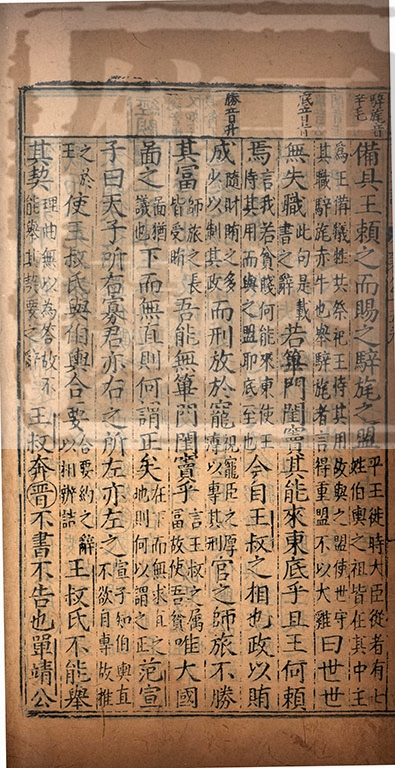 騂旄音
辛毛
底音旨
勝音升
備具王頼之而賜之騂旄之盟
平王徙時大臣從者有七
姓伯輿之祖皆在其中主
爲王備犧牲共祭祀王恃其用故與之盟使世守
其職騂旄赤牛也舉騂旄者言得重盟不以犬雞
曰世世
無失職
此句是載
書之辭
若篳門閨竇其能來東底乎且王何頼
焉
言我若貧賤何能來東使王
恃其用而與之盟耶底至也
今自王叔之相也政以賄
成
隨財賄之多
少以制其政
而刑放於寵
視寵臣之厚
薄以專其刑
官之師旅不勝
其富
師旅之長
皆受賂
吾能無篳門閨竇乎
言王叔之屬
富故使吾貧
唯大國
啚之
啚猶
議也
下而無直則何謂正矣
在下而無求直之
地則何以謂之正
范宣
子曰天子所右寡君亦右之所左亦左之
宣子知伯輿直
不欲自專故推
之於
王
使王叔氏與伯輿合要
合要約之辭
以相辯詰
王叔氏不能舉
其契
理曲無以爲答故不
能舉其契要之辭
王叔奔晉不書不告也單靖公